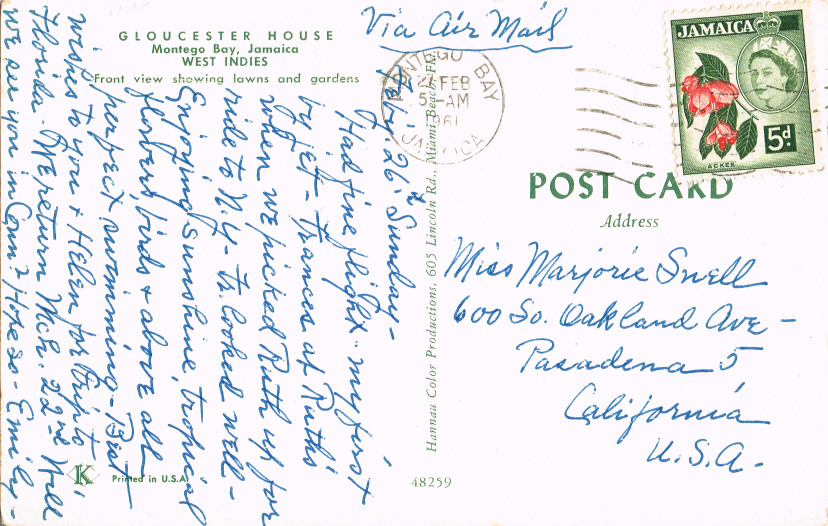 GLOUCESTER HOUSE
Montego Bay, Jamaica
WEST INDIES
Front view showing lawns and gardens
Via Air Mail
MONTEGO BAY
27 FEB
5-AM
1961
JAMAICA
JAMAICA
5d.
ACKEE
Feby. 26th Sunday -
Had fine flight - my first
by jet - Frances at Ruth's
when we picked Ruth up for
ride to N.Y. - Fr. looked well -
Enjoying sunshine, tropical
flowers, birds & above all
perfect swimming - Best
wishes to you & Helen for trip to
Florida - We return Mch. 22nd Will
we see you in Conn? Hope so - Emily -
Hannau Color Productions, 605 Lincoln Rd., Miami Beach, Fla.
POST CARD
Address
Miss Marjorie Snell
600 So. Oakland Ave -
Pasadena 5,
California
U.S.A.
K
Printed in U.S.A.
48259